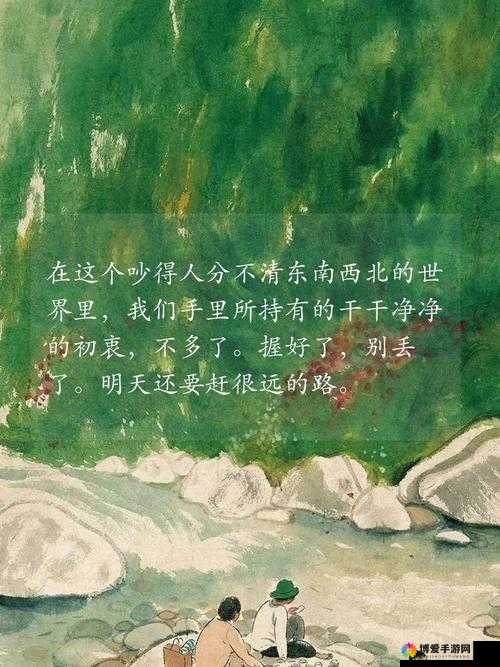 在这个吵得人分不清东南西北的世
界里，我们手里所持有的干干净净
的初衷，不多了。握好了，别丢
了。明天还要赶很远的路。
博爱手游网